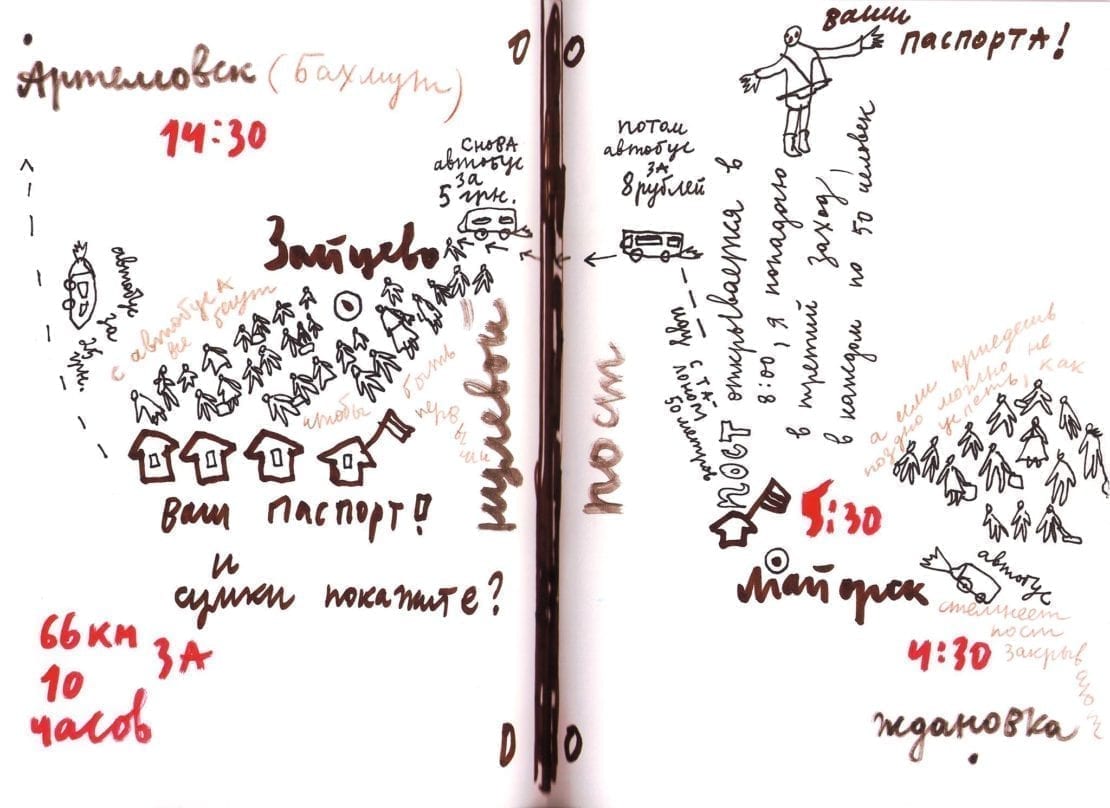 Артемовск (Бахмут)
14:30
снова
автобус
за
5 грн.
Зайцево
автобус
с автобуса
все бегут
чтобы
быть
первыми
ваш паспорт!
и
сумки покажите?
66 км
за
10
часов
нулевой
пост
0
0
0
0
ваши
паспорта!
потом
автобус
за
8 рублей
пост открывается в
8:00, я попадаю
в третий заход,
в каждом по 50 человек
иду с та-
50 метров
5:30
а если приедешь
поздно можно не
успеть, как
Майорск
автобус
стемнеет
пост
закрывают
4:30
Ждановка